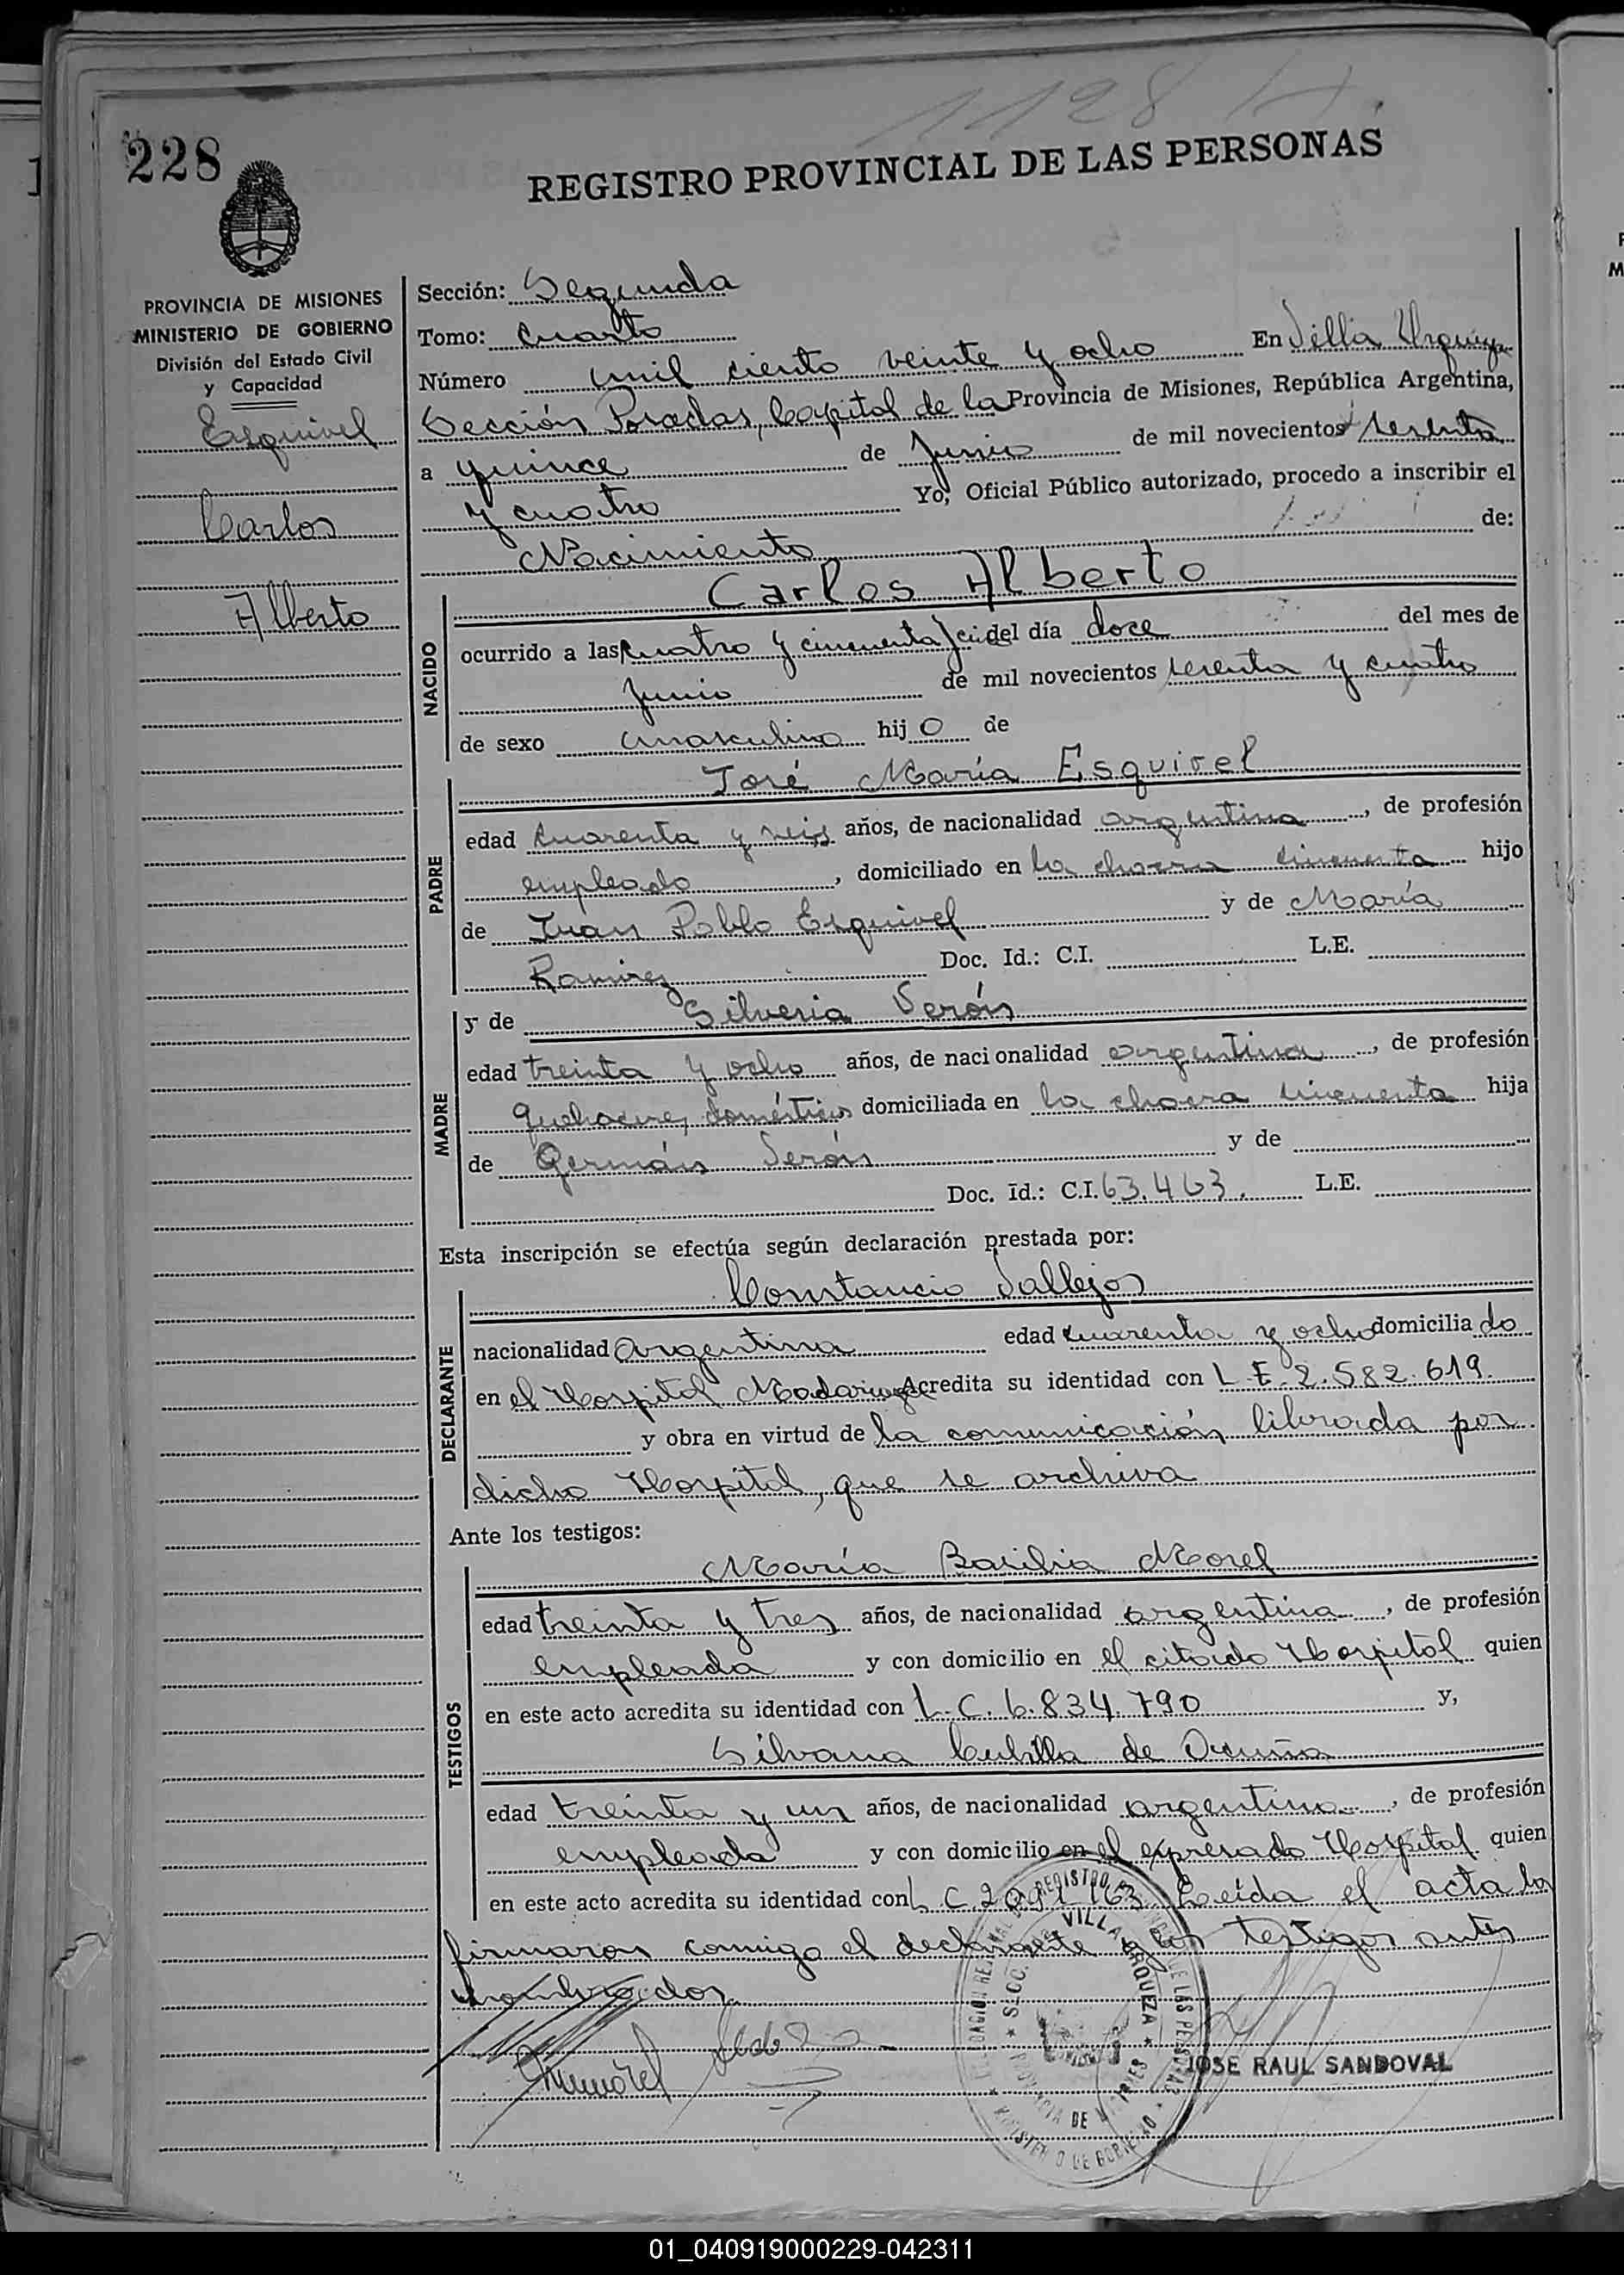 1128
228
REGISTRO PROVINCIAL DE LAS PERSONAS
PROVINCIA DE MISIONES
MINISTERIO DE GOBIERNO
División del Estado Civil
y Capacidad
Esquivel
Carlos
Alberto
Sección: Segunda
Tomo: Cuarto
Número mil ciento veinte y ocho En Villa Urquiza
Sección Posadas, Capital de la Provincia de Misiones, República Argentina,
a quince de Junio de mil novecientos sesenta
y cuatro Yo, Oficial Público autorizado, procedo a inscribir el
Nacimiento de:
NACIDO
Carlos Alberto
ocurrido a las cuatro y cincuenta del día doce del mes de
junio de mil novecientos sesenta y cuatro
de sexo masculino hijo de
PADRE
José María Esquivel
edad cuarenta y seis años, de nacionalidad argentina, de profesión
empleado, domiciliado en la chacra cincuenta hijo
de Juan Pablo Esquivel y de María
Ramirez Doc. Id.: C.I. L.E.
MADRE
y de Silveria Verón
edad treinta y ocho años, de nacionalidad argentina, de profesión
quehaceres domésticos domiciliada en la chacra cincuenta hija
de Germán Verón y de
Doc. Id.: C.I. 63.463. L.E.
Esta inscripción se efectúa según declaración prestada por:
DECLARANTE
Constancio Vallejos
nacionalidad argentina edad cuarenta y ocho domiciliado
en el Hospital Madariaga Acredita su identidad con L.E. 2.582.619.
y obra en virtud de la comunicación librada por
dicho Hospital, que se archiva
Ante los testigos:
TESTIGOS
María Basilia Morel
edad treinta y tres años, de nacionalidad argentina, de profesión
empleada y con domicilio en el citado Hospital quien
en este acto acredita su identidad con L.C. 6.834.790 y,
Silvana Cubilla de Acuña
edad treinta y un años, de nacionalidad argentina, de profesión
empleada y con domicilio en el expresado Hospital quien
en este acto acredita su identidad con L.C. Leída el acta la
firmaron conmigo el declarante y los testigos antes
nombrados
VILLA URQUIZA
JOSE RAUL SANDOVAL
01_040919000229-042311